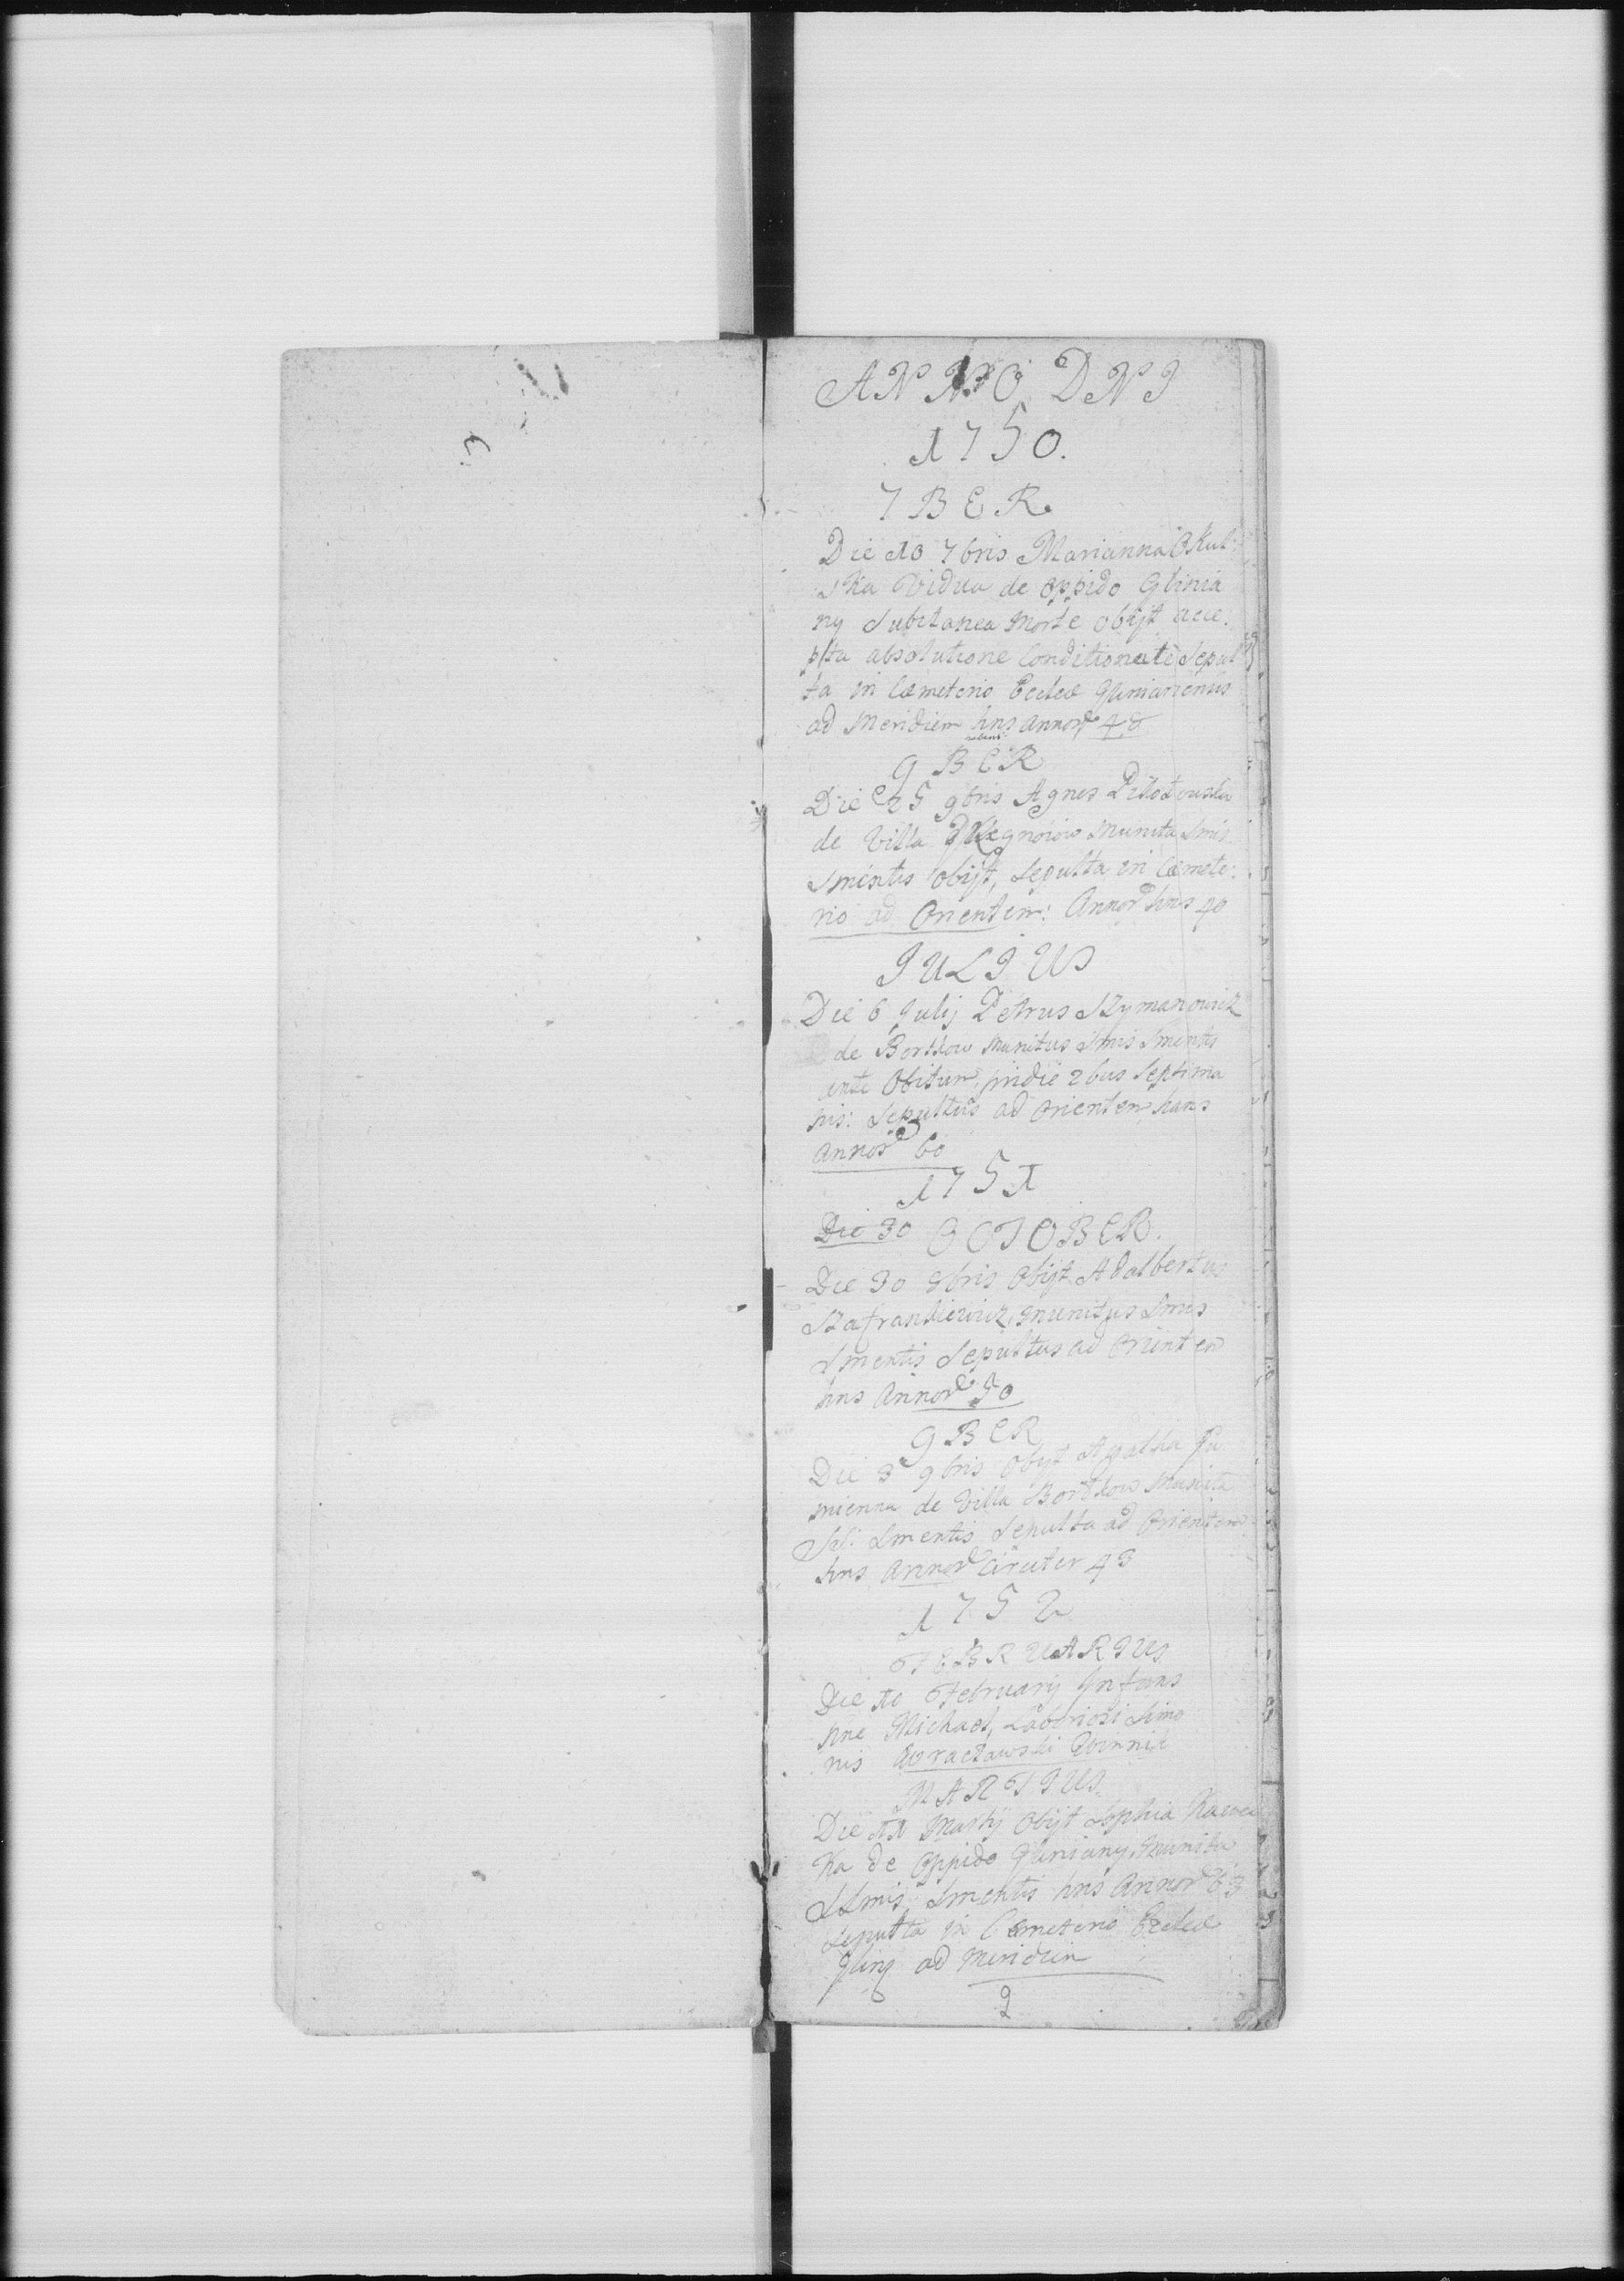 ANNO DNI
1750.
7BER.
Die 10 7bris Marianna Okul:
ska Vidua de oppido Glinia
ny Subitanea Morte obijt acce:
pta absolutione Conditionate Sepul
ta in Cæmeterio Eccleæ Glinianensis
ad Meridiem hns annor 48
9BER
Die 25 9bris Agnes
de Villa munita Smis
Smentis obijt, Sepulta in Cæmete:
rio ad Orientem: Annor hns 40
JULIUS
Die 6 Julij Petrus Szymanowicz
de Borszow Munitus Smis Smentis
ante Obitum, pridie 2bus Septima
nis: Sepultus ad Orientem hans
Annor 60
1751
Die 30 OCTOBER.
Die 30 8bris Obijt Adalbertus
Szafrankiewicz, munitus Smis
Smentis Sepultus ad Orientem
hns Annor 50
9BER
Die 3 9bris Obijt Agatha
mienna de Villa Borszow Munita
SS: Smentis Sepulta ad Orientem
hns Annor Circiter 43
1752
FEBRUARIUS
Die 10 February Infans
nne Michael, Laboriosi Simo
nis Wracławski
MARTIUS
Die 11 Martij Obijt Sophia Kawec
ka de Oppido Gliniany, Munita
SSmis Smentis hns Annor 63
Sepulta in Cæmeterio Eccleæ
Glin ad Meridiem
2